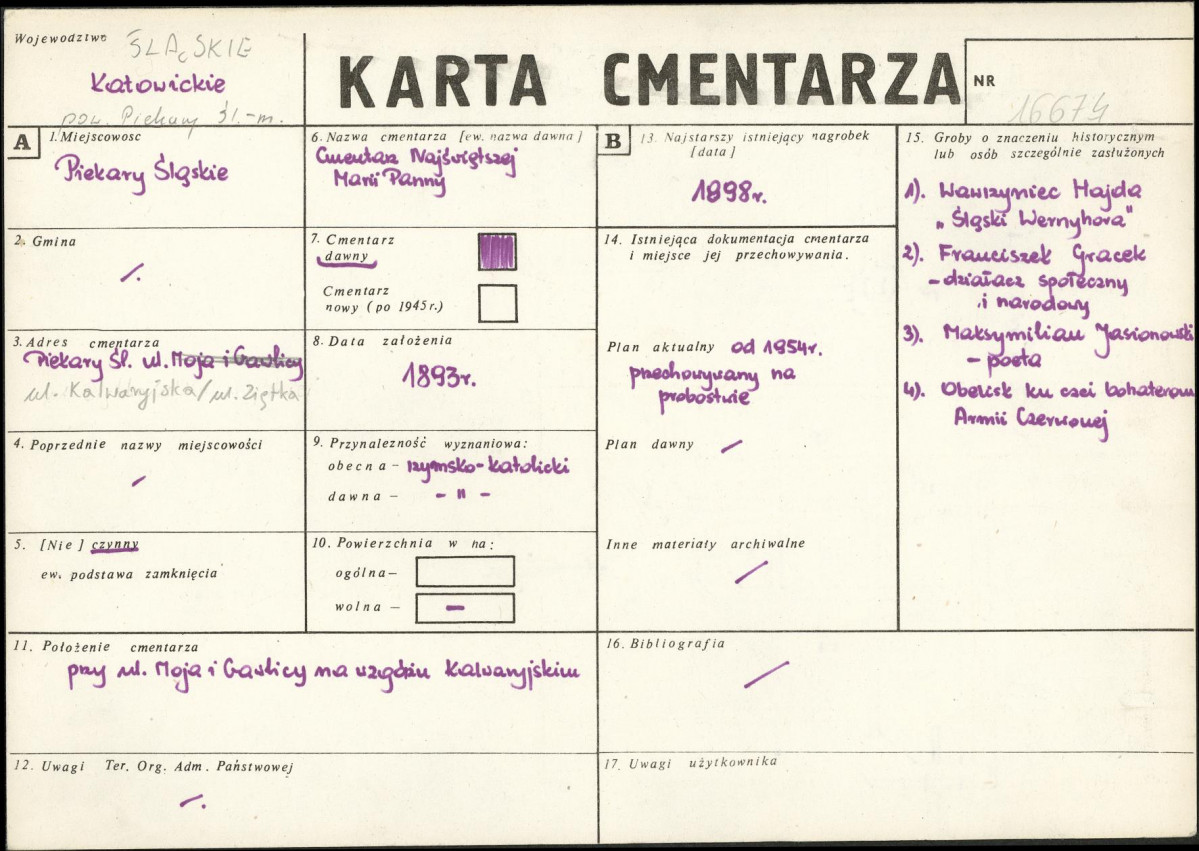 Województwo ŚLĄSKIE
Katowickie
pow. Piekary Śl.-m.
KARTA CMENTARZA
NR
16674
A
1. Miejscowosc
Piekary Śląskie
2. Gmina
/.
3. Adres cmentarza
Piekary Śl. ul. Moja i Gawlicy
ul. Kalwaryjska/ul. Ziętka
4. Poprzednie nazwy miejscowości
/
5. [Nie] czynny
ew. podstawa zamknięcia
6. Nazwa cmentarza [ew. nazwa dawna]
Cmentarz Najświętszej
Marii Panny
7. Cmentarz
dawny
Cmentarz
nowy (po 1945 r.)
8. Data założenia
1893r.
9. Przynależność wyznaniowa:
obecna – rzymsko-katolicki
dawna – - " -
10. Powierzchnia w ha:
ogólna –
wolna – -
11. Położenie cmentarza
przy ul. Moja i Gawlicy na wzgórzu Kalwaryjskim
12. Uwagi Ter. Org. Adm. Państwowej
/.
B
13. Najstarszy istniejący nagrobek
[data]
1898r.
14. Istniejąca dokumentacja cmentarza
i miejsce jej przechowywania.
Plan aktualny od 1954r.
przechowywany na
probostwie
Plan dawny /
Inne materiały archiwalne
/
15. Groby o znaczeniu historycznym
lub osób szczególnie zasłużonych
1). Wawrzyniec Hajda
"Śląski Wernyhora"
2). Franciszek Gracek
- działacz społeczny
i narodowy
3). Maksymilian Jasionowski
- poeta
4). Obelisk ku czci bohaterom
Armii Czerwonej
16. Bibliografia
/
17. Uwagi użytkownika